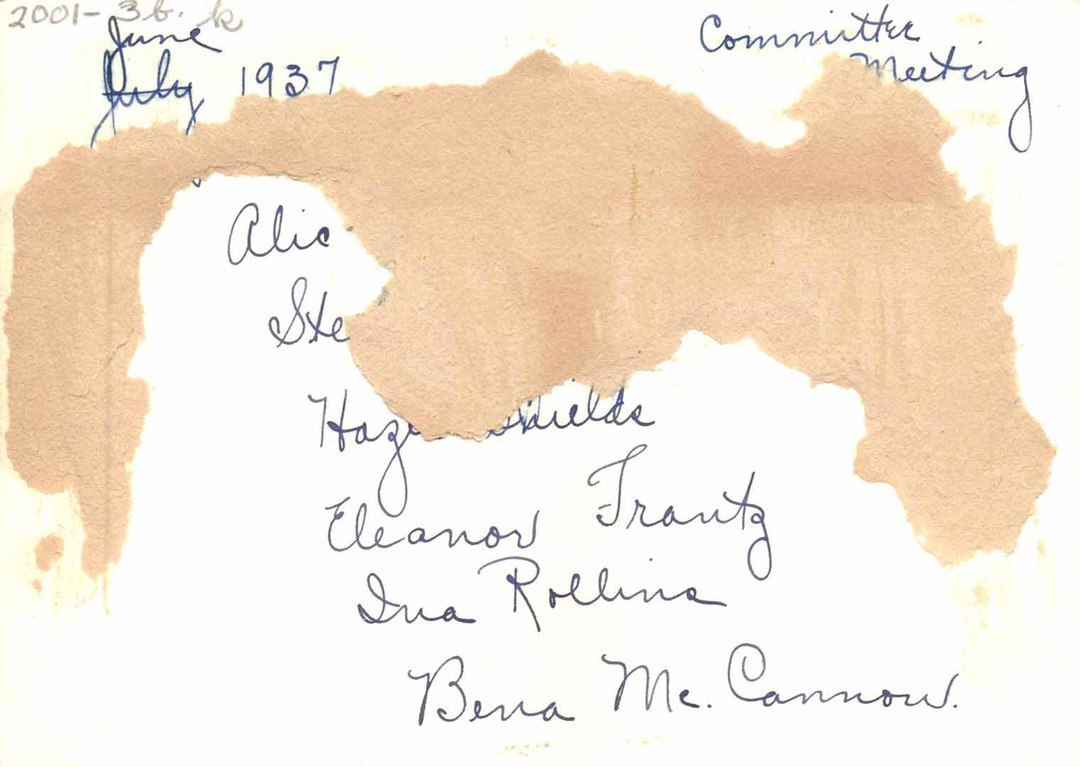 2001-3b. k
June
July 1937
Committee
Meeting
Alic
Ste
Haz Shields
Eleanor Frantz
Ina Rollins
Bena Mc. Cannow.